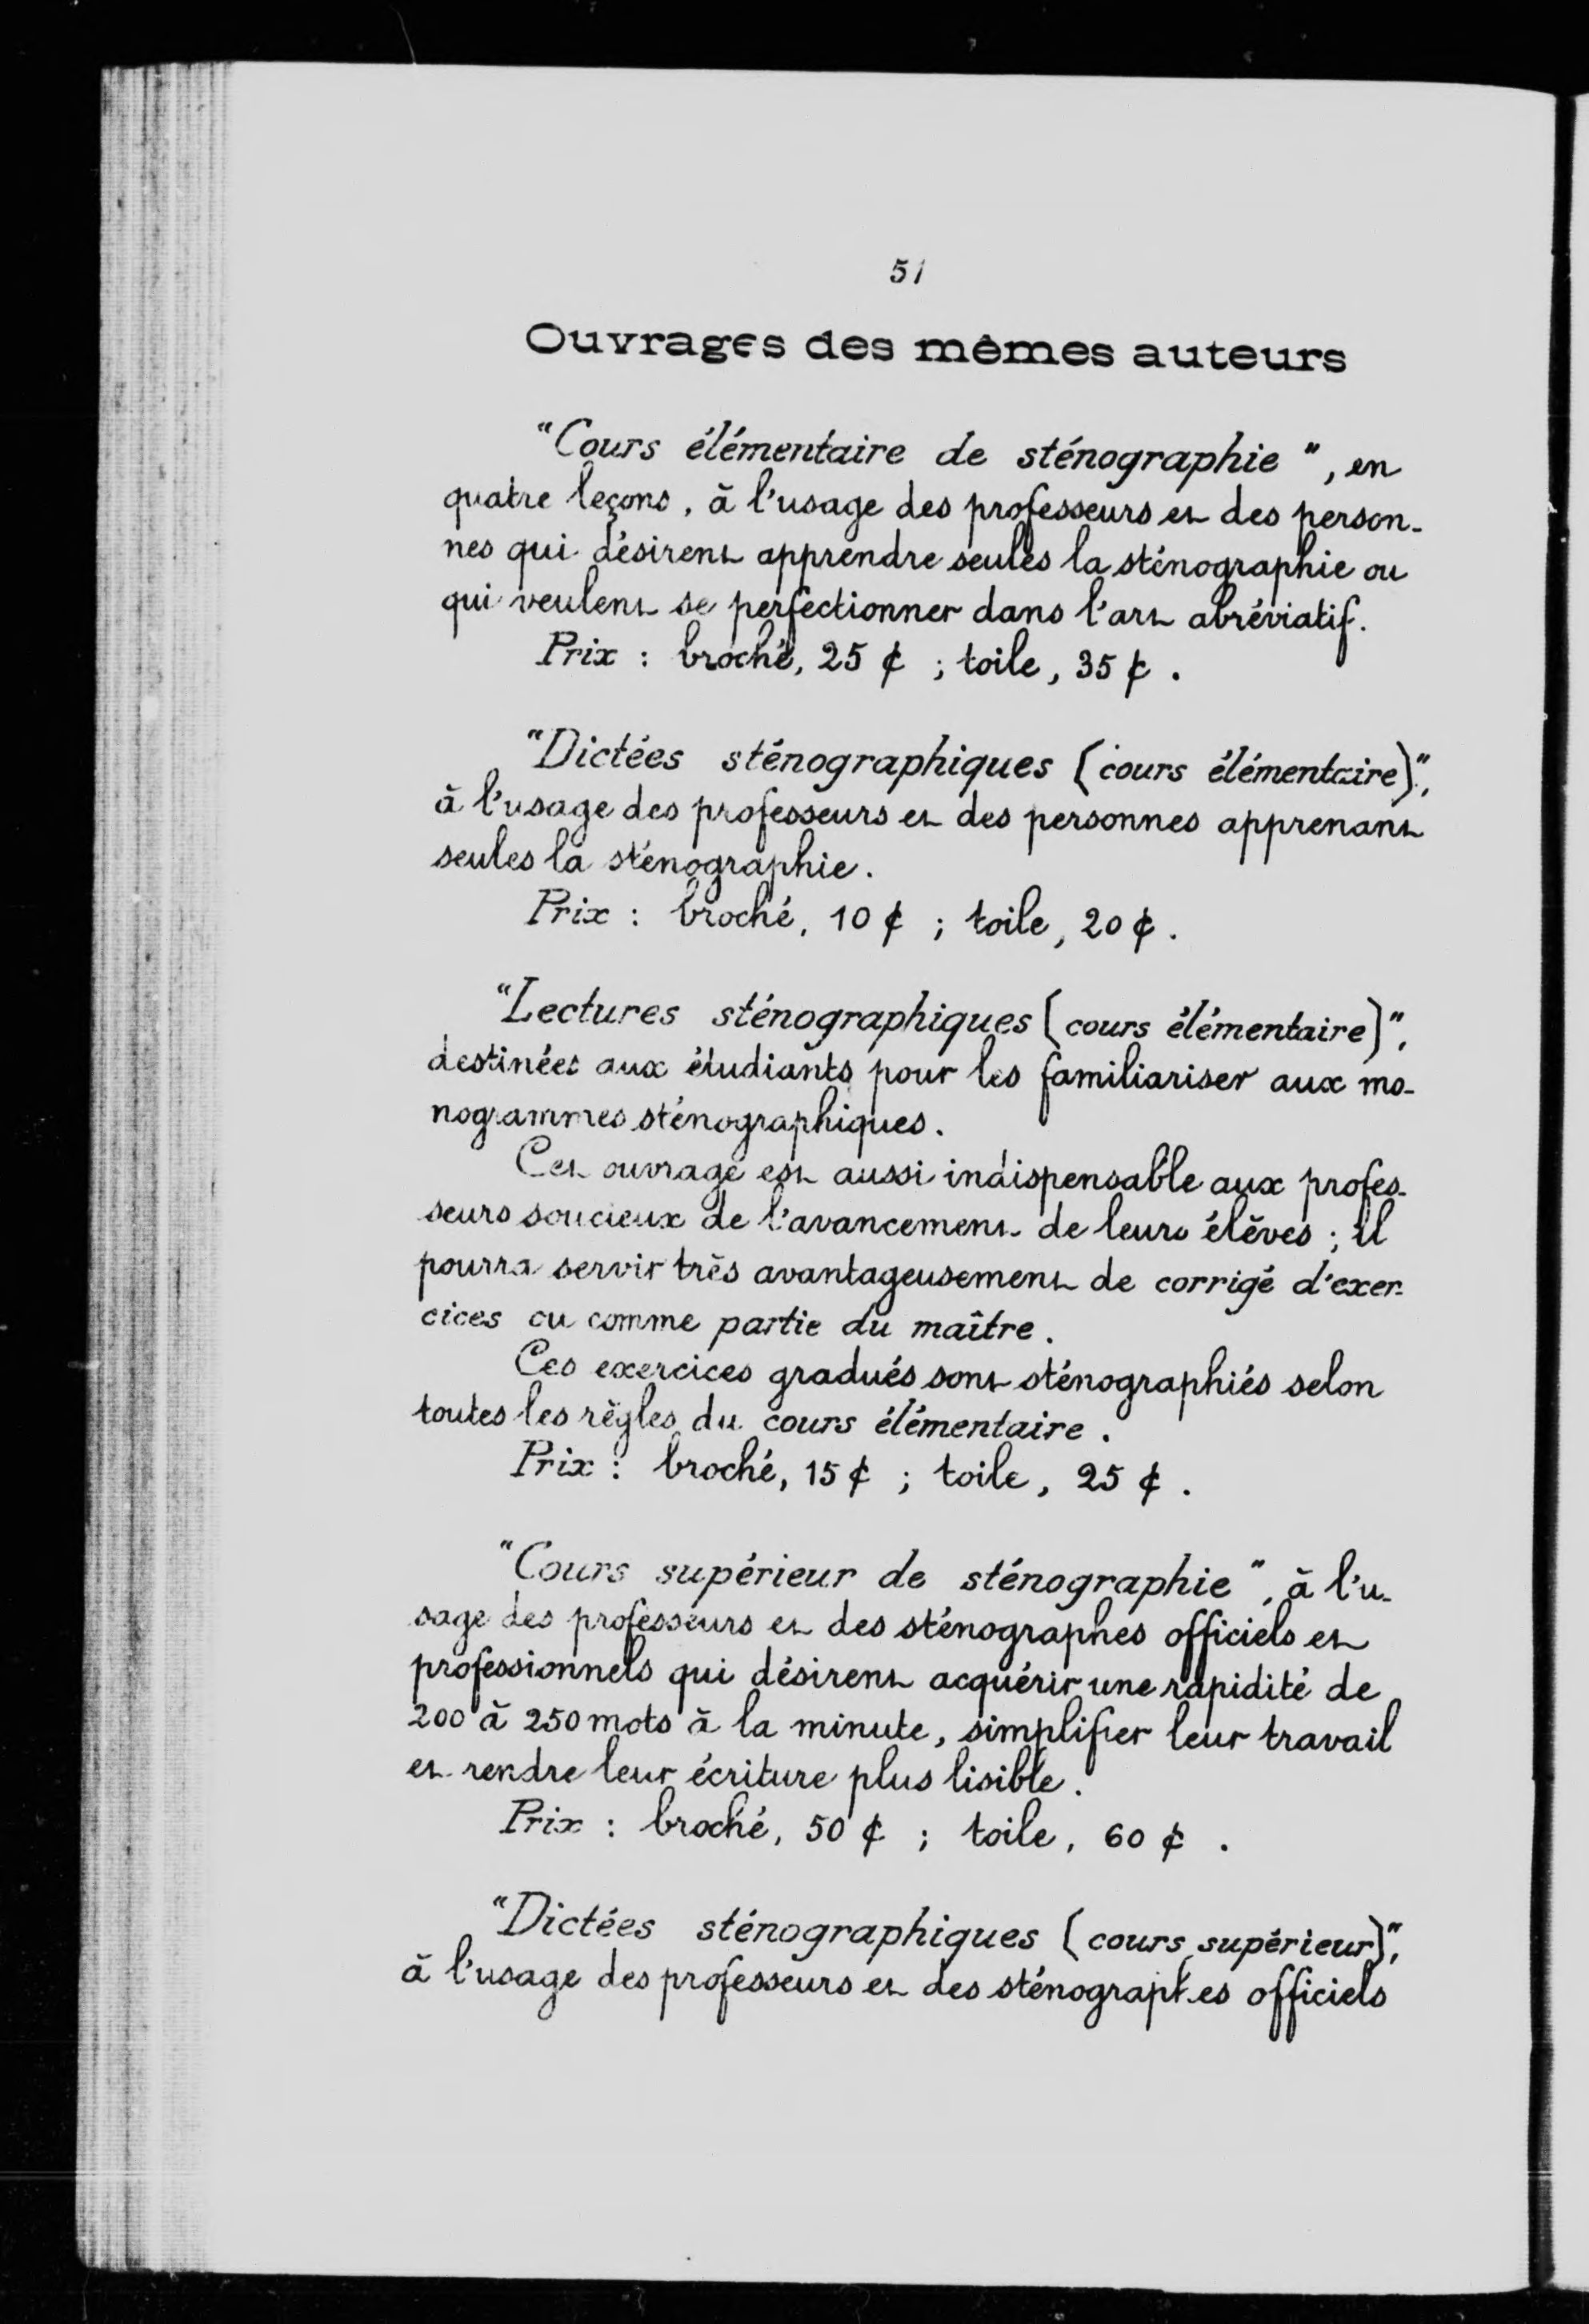 51
Ouvrages des mêmes auteurs
"Cours élémentaire de sténographie", en
quatre leçons, à l'usage des professeurs et des person-
nes qui désirent apprendre seules la sténographie ou
qui veulent se perfectionner dans l'art abréviatif.
Prix : broché, 25 ¢ ; toile, 35 ¢ .
"Dictées sténographiques (cours élémentaire)",
à l'usage des professeurs et des personnes apprenant
seules la sténographie.
Prix : broché, 10 ¢ ; toile, 20 ¢ .
"Lectures sténographiques (cours élémentaire)",
destinées aux étudiants pour les familiariser aux mo-
nogrammes sténographiques.
Cet ouvrage est aussi indispensable aux profes-
seurs soucieux de l'avancement de leurs élèves ; il
pourra servir très avantageusement de corrigé d'exer-
cices ou comme partie du maître.
Ces exercices gradués sont sténographiés selon
toutes les règles du cours élémentaire.
Prix : broché, 15 ¢ ; toile, 25 ¢ .
"Cours supérieur de sténographie", à l'u-
sage des professeurs et des sténographes officiels et
professionnels qui désirent acquérir une rapidité de
200 à 250 mots à la minute, simplifier leur travail
et rendre leur écriture plus lisible.
Prix : broché, 50 ¢ ; toile, 60 ¢ .
"Dictées sténographiques (cours supérieur)",
à l'usage des professeurs et des sténographes officiels